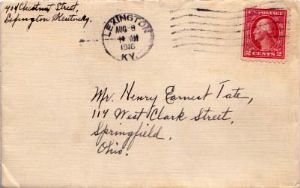 404 Chestnut Street,
Lexington Kentucky.
LEXINGTON
AUG 8
AM
1916
KY.
U.S. POSTAGE
2 CENTS 2
Mr. Henry Earnest Tate,
117 West Clark Street.
Springfield.
Ohio.